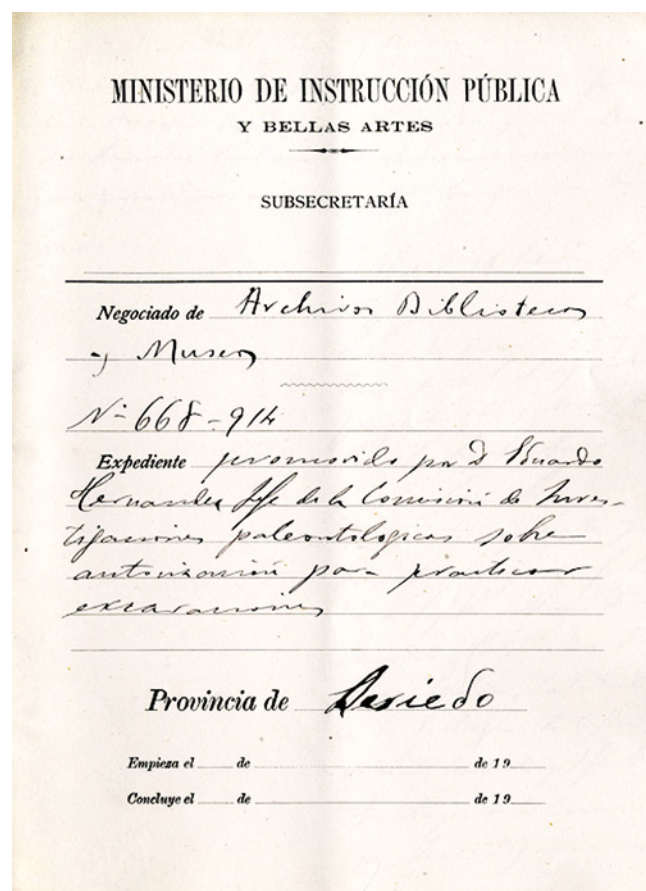 MINISTERIO DE INSTRUCCIÓN PÚBLICA
Y BELLAS ARTES
SUBSECRETARÍA
Negociado de Archivos Bibliotecas
y Museos
Nº 668-914
Expediente promovido por D Eduardo
Hernandez Jefe de la Comisión de Inves-
tigaciones paleontologicas sobre
autorización para practicar
excavaciones
Provincia de Oviedo
Empieza el de de 19
Concluye el de de 19